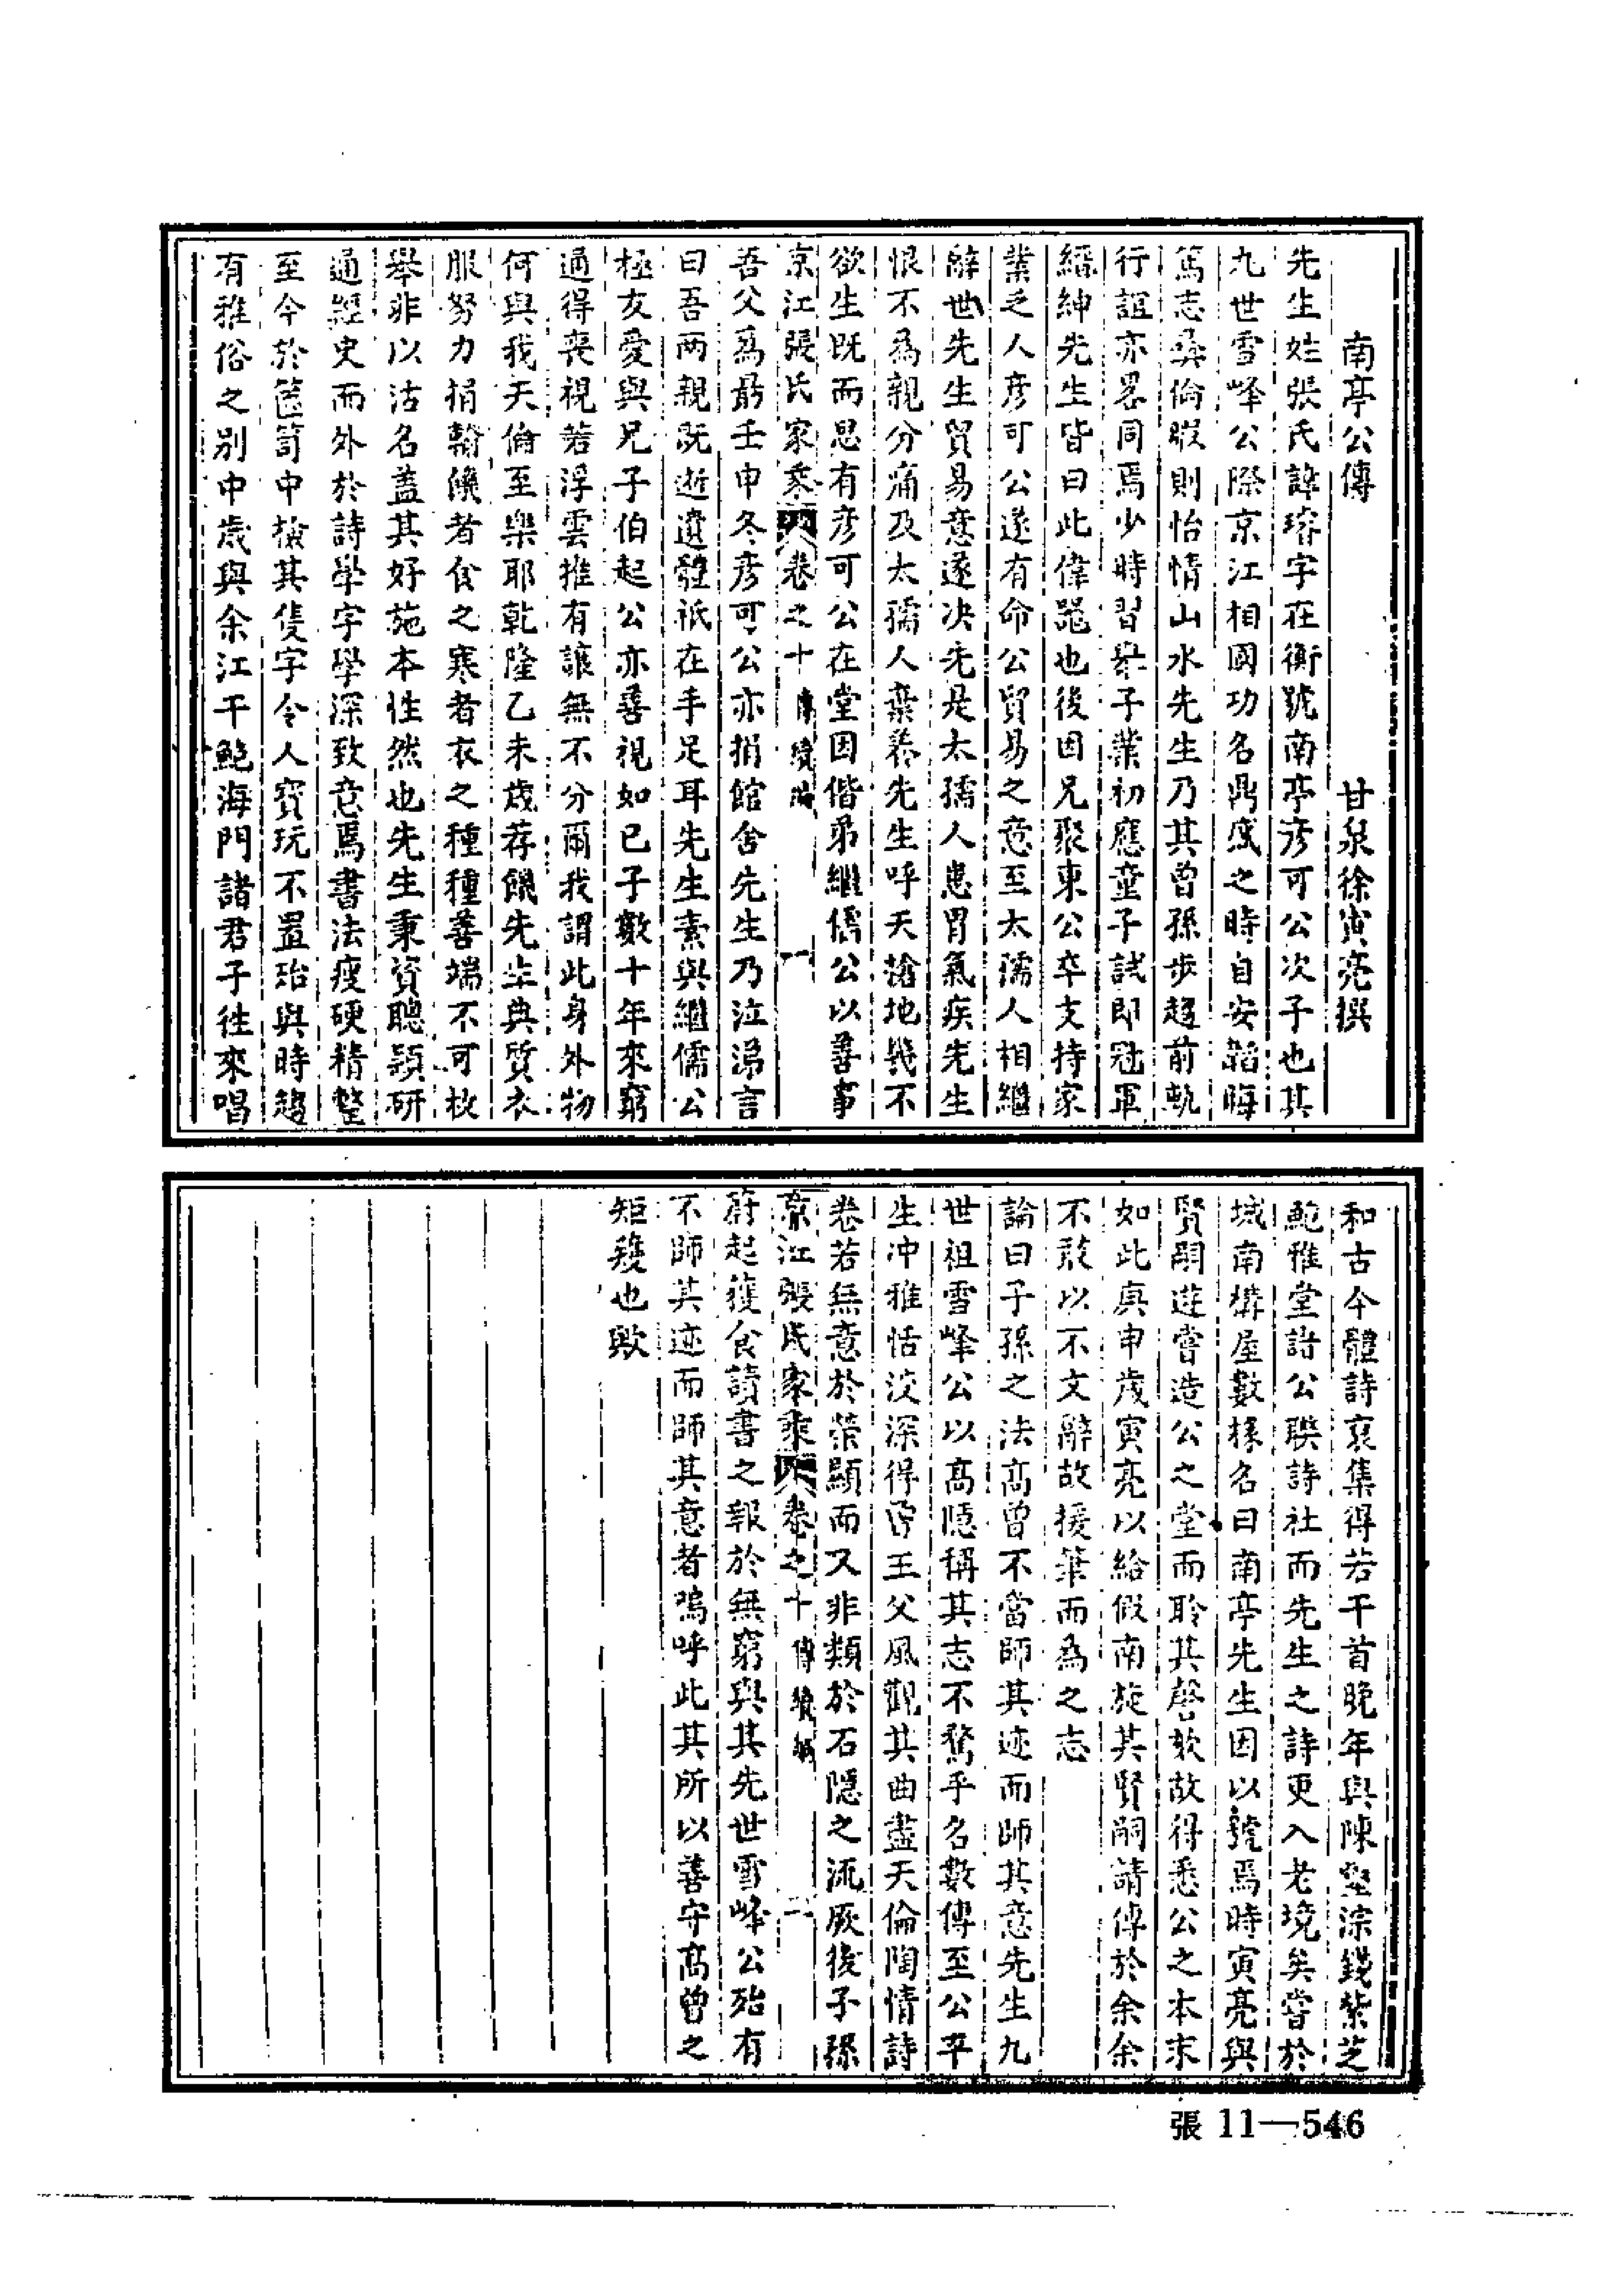 南亭公傳 甘泉徐寅亮撰
先生姓張氏諱瑢字在衡號南亭彥可公次子也其
九世雪峰公際京江相國功名鼎盛之時自安韜晦
篤志彝倫暇則怡情山水先生乃其曾孫步趨前軌
行誼亦畧同焉少時習舉子業初應童子試即冠軍
縉紳先生皆曰此偉器也後因兄聚東公卒支持家
業乏人彥可公遂有命公貿易之意至太孺人相繼
辭世先生貿易意遂決先是太孺人患胃氣疾先生
恨不爲親分痛及太孺人棄養先生呼天搶地幾不
欲生既而思有彥可公在堂因偕弟繼儒公以善事
京江張氏家乘 卷之十 傳 續編 一
吾父爲最壬申冬彥可公亦捐館舍先生乃泣涕言
曰吾兩親既逝遺體祇在手足耳先生素與繼儒公
極友愛與兄子伯起公亦善視如已子數十年來窮
通得喪視若浮雲推有讓無不分爾我謂此身外物
何與我天倫至樂耶乾隆乙未歲荐饑先生典質衣
服努力捐輸饑者食之寒者衣之種種善端不可枚
舉非以沽名蓋其好施本性然也先生秉資聰穎研
通經史而外於詩學字學深致意焉書法瘦硬精整
至今於篋笥中檢其隻字令人寶玩不置殆與時趨
有雅俗之別中歲與余江干鮑海門諸君子徃來唱
和古今體詩裒集得若干首晚年與陳堅淙錢紫芝
鮑雅堂諸公聯詩社而先生之詩更入老境矣嘗於
城南構屋數椽名曰南亭先生因以號焉時寅亮與
賢嗣遊嘗造公之堂而聆其謦欬故得悉公之本末
如此庚申歲寅亮以給假南旋其賢嗣請傳於余余
不敢以不文辭故援筆而爲之志
論曰子孫之法高曾不當師其迹而師其意先生九
世祖雪峰公以高隱稱其志不騖乎名數傳至公平
生冲雅恬淡深得乃王父風觀其曲盡天倫陶情詩
卷若無意於榮顯而又非類於石隱之流厥後子孫
京江張氏家乘 卷之十 傳 續編 二
蔚起獲食讀書之報於無窮與其先世雪峰公殆有
不師其迹而師其意者嗚呼此其所以善守高曾之
矩矱也歟
張 11—546